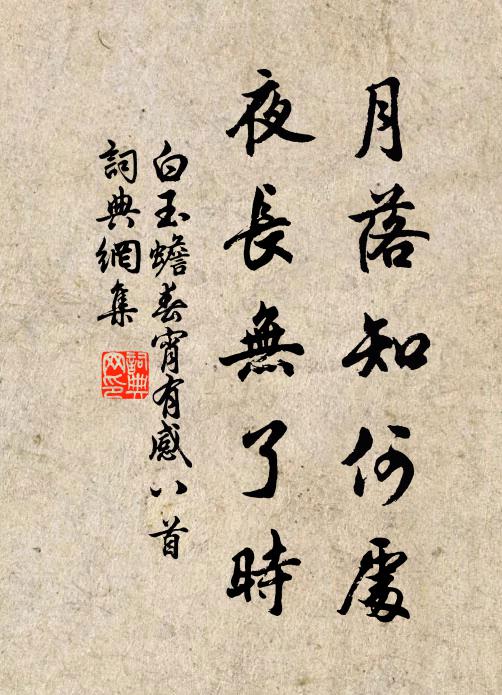 月落知何處
夜長無了時
白玉蟾春宵有感八首
詞典網集
詞典
网印